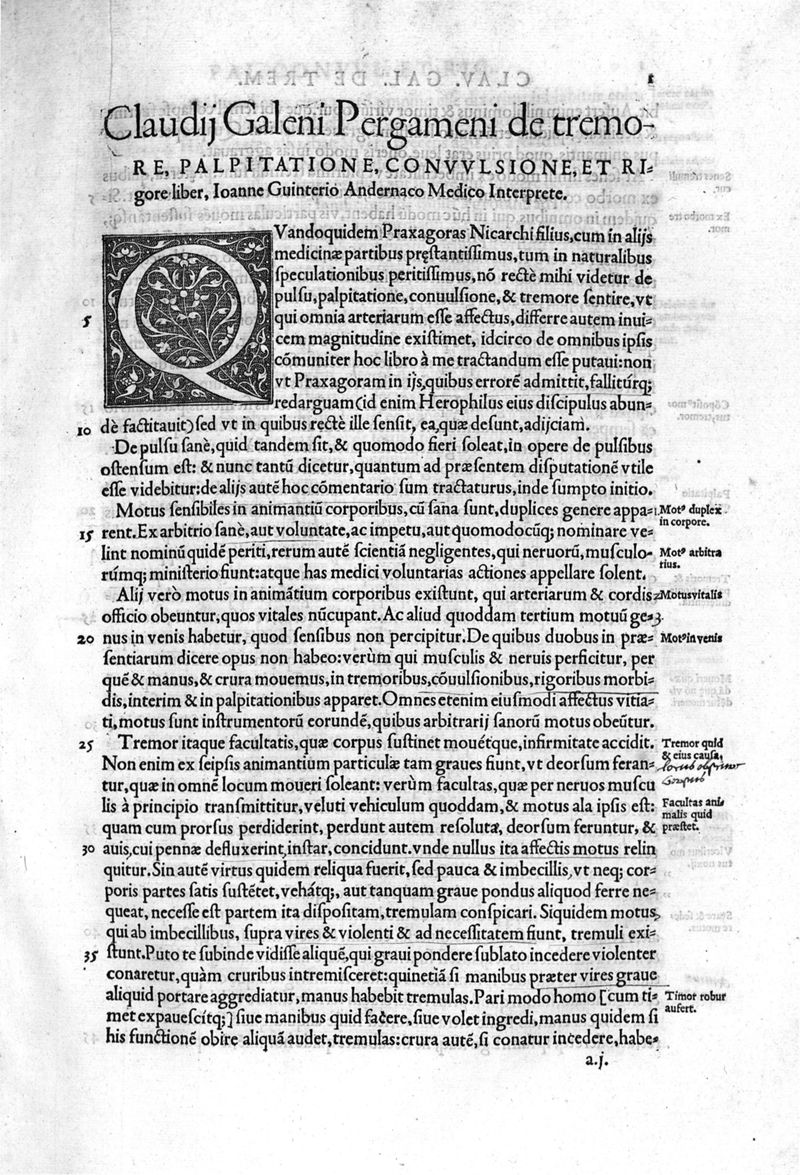 1
Claudij Galeni Pergameni de tremo-
RE, PALPITATIONE, CONVVLSIONE, ET RI-
gore liber, Ioanne Guinterio Andernaco Medico Interprete.
QVandoquidem Praxagoras Nicarchi filius, cum in alijs
medicinæ partibus pręstantissimus, tum in naturalibus
speculationibus peritissimus, nō rectè mihi videtur de
pulsu, palpitatione, conuulsione, & tremore sentire, vt
5 qui omnia arteriarum esse affectus, differre autem inui-
cem magnitudine existimet, idcirco de omnibus ipsis
cōmuniter hoc libro à me tractandum esse putaui: non
vt Praxagoram in ijs, quibus errorē admittit, fallitúrq;
redarguam (id enim Herophilus eius discipulus abun-
10 dè factitauit) sed vt in quibus rectè ille sensit, ea, quæ desunt, adijciam.
De pulsu sanè, quid tandem sit, & quomodo fieri soleat, in opere de pulsibus
ostensum est: & nunc tantū dicetur, quantum ad præsentem disputationē vtile
esse videbitur: de alijs autē hoc cōmentario sum tractaturus, inde sumpto initio.
Motus sensibiles in animantiū corporibus, cū sana sunt, duplices genere appa- 1. Motꝰ duplex
in corpore.
15 rent. Ex arbitrio sanè, aut voluntate, ac impetu, aut quomodocūq; nominare ve-
lint nominū quidē periti, rerum autē scientiā negligentes, qui neruorū, musculo- Motꝰ arbitra
rius.
rúmq; ministerio fiunt: atque has medici voluntarias actiones appellare solent.
Alij verò motus in animātium corporibus existunt, qui arteriarum & cordis 2. Motus vitalis
officio obeuntur, quos vitales nūcupant. Ac aliud quoddam tertium motuū ge- 3.
20 nus in venis habetur, quod sensibus non percipitur. De quibus duobus in præ- Motꝰ in venis
sentiarum dicere opus non habeo: verùm qui musculis & neruis perficitur, per
quē & manus, & crura mouemus, in tremoribus, cōuulsionibus, rigoribus morbi-
dis, interim & in palpitationibus apparet. Omnes etenim eiusmodi affectus vitia-
ti, motus sunt instrumentorū eorundē, quibus arbitrarij sanorū motus obeūtur.
25 Tremor itaque facultatis, quæ corpus sustinet mouétque, infirmitate accidit. Tremor quid
& eius causa.
Non enim ex seipsis animantium particulæ tam graues fiunt, vt deorsum feran-
tur, quæ in omnē locum moueri soleant: verùm facultas, quæ per neruos muscu
lis à principio transmittitur, veluti vehiculum quoddam, & motus ala ipsis est: Facultas ani-
malis quid
præstet.
quam cum prorsus perdiderint, perdunt autem resoluta, deorsum feruntur, &
30 auis, cui pennæ defluxerint, instar, concidunt. vnde nullus ita affectis motus relin
quitur. Sin autē virtus quidem reliqua fuerit, sed pauca & imbecillis, vt neq; cor-
poris partes satis sustētet, vehátq;, aut tanquam graue pondus aliquod ferre ne-
queat, necesse est partem ita dispositam, tremulam conspicari. Siquidem motus,
qui ab imbecillibus, supra vires & violenti & ad necessitatem fiunt, tremuli exi-
35 stunt. Puto te subinde vidisse aliquē, qui graui pondere sublato incedere violenter
conaretur, quàm cruribus intremisceret: quinetiā si manibus præter vires graue
aliquid portare aggrediatur, manus habebit tremulas. Pari modo homo [cum ti- Timor robur
aufert.
met expauescítq;] siue manibus quid facere, siue volet ingredi, manus quidem si
his functionē obire aliquā audet, tremulas: crura autē, si conatur incedere, habe-
a.j.